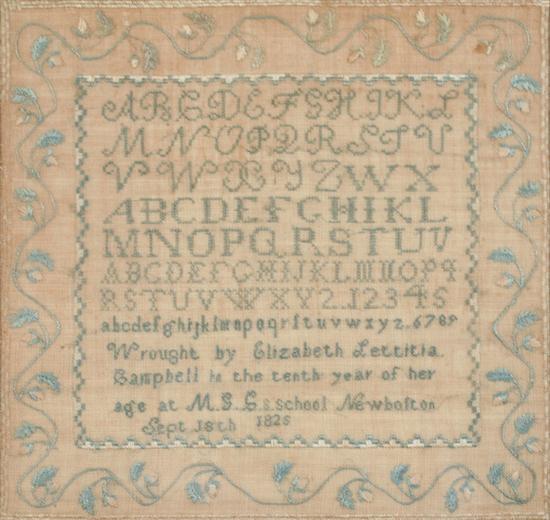 A B C D E F G H I K L
M N O P Q R S T U
V W X Y Z W X
A B C D E F G H I K L
M N O P Q R S T U V
A B C D E F G H I J K L M N O P q
R S T U V W X Y Z . 1 2 3 4 5
a b c d e f g h i j k l m n o p q r ſ t u v w x y z . 6 7 8 9
Wrought by Elizabeth Lettitia.
Campbell in the tenth year of her
age at M. S. school Newboſton
Sept 18th 1825